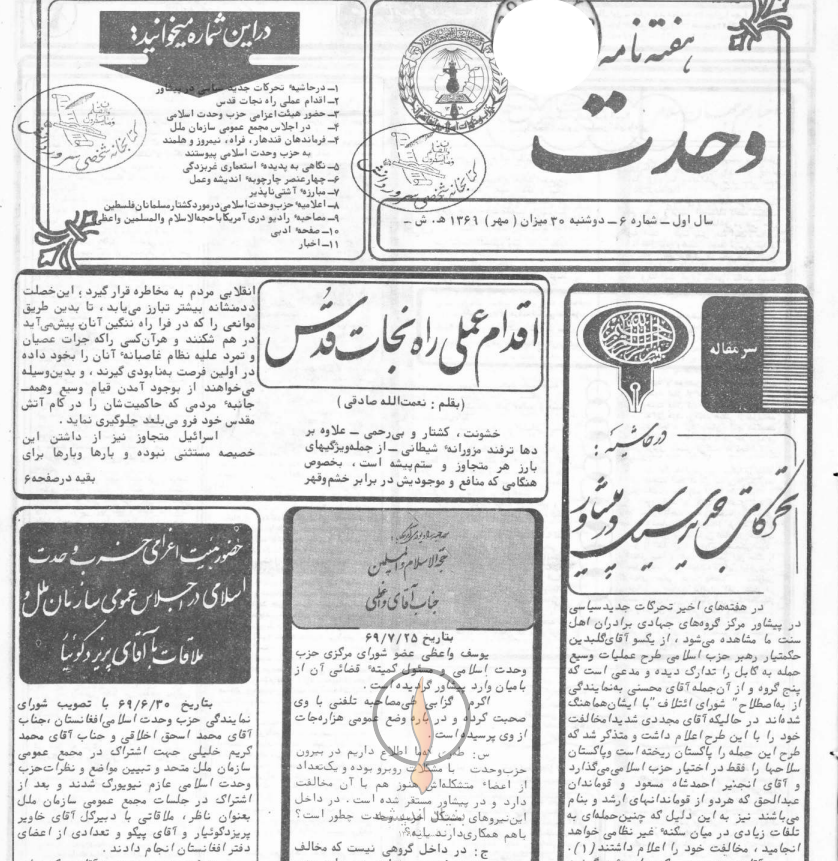 هفته نامه
وحدت
سال اول ــ شماره ۶ ــ دوشنبه ۳۰ میزان ( مهر ) ۱۳۶۹ هـ . ش ــ
دراین شماره میخوانید:
۱ــ درحاشیهٔ تحرکات جدید سیاسی در پیشاور
۲ــ اقدام عملی راه نجات قدس
۳ــ حضور هیئت اعزامی حزب وحدت اسلامی
۴ــ در اجلاس مجمع عمومی سازمان ملل
۴ــ فرماندهان قندهار ، فراه ، نیمروز و هلمند
به حزب وحدت اسلامی پیوستند
۵ــ نگاهی به پدیدهٔ استعماری غربزدگی
۶ــ چهارعنصر چارچوبهٔ اندیشه وعمل
۷ــ مبارزهٔ آشتی ناپذیر
۸ــ اعلامیهٔ حزب وحدت اسلامی درمورد کشتار مسلمانان فلسطین
۹ــ مصاحبهٔ رادیو دری آمریکا باحجةالاسلام والمسلمین واعظی
۱۰ــ صفحهٔ ادبی
۱۱ــ اخبار
سرمقاله
درحاشیه :
تحرکات جدید سیاسی در پیشاور
در هفته‌های اخیر تحرکات جدید سیاسی
در پیشاور مرکز گروه‌های جهادی برادران اهل
سنت ما مشاهده می‌شود ، از یکسو آقای گلبدین
حکمتیار رهبر حزب اسلامی طرح عملیات وسیع
حمله به کابل را تدارک دیده و مدعی است که
پنج گروه و از آن جمله آقای محسنی به‌نمایندگی
از به‌اصطلاح " شورای ائتلاف "با ایشان هماهنگ
شده‌اند در حالیکه آقای مجددی شدیدا مخالفت
خود را با این طرح اعلام داشت و متذکر شد که
طرح این حمله را پاکستان ریخته است وپاکستان
سلاحها را فقط در اختیار حزب اسلامی می‌گذارد
و آقای انجنیر احمدشاه مسعود و قوماندان
عبدالحق که هردو از قوماندانهای ارشد و بنام
می‌باشند نیز به این دلیل که چنین حمله‌ای به
تلفات زیادی در میان سکنهٔ غیر نظامی خواهد
انجامید ، مخالفت خود را اعلام داشتند (۱) .
اقدام عملی راه نجات قدس
(بقلم : نعمت‌الله صادقی )
خشونت ، کشتار و بی‌رحمی ــ علاوه بر
دها ترفند مزورانهٔ شیطانی ــ از جمله ویژگیهای
بارز هر متجاوز و ستم‌پیشه است ، بخصوص
هنگامی که منافع و موجودیش در برابر خشم وقهر
انقلابی مردم به مخاطره قرار گیرد ، این خصلت
ددمنشانه بیشتر تبارز می‌یابد ، تا بدین طریق
موانعی را که در فرا راه ننگین آنان پیش می‌آید
در هم شکنند و هرآن کسی راکه جرات عصیان
و تمرد علیه نظام غاصبانهٔ آنان را بخود داده
در اولین فرصت به‌نابودی گیرند ، و بدین‌وسیله
می‌خواهند از بوجود آمدن قیام وسیع وهمه‌ــ
جانبهٔ مردمی که حاکمیت‌شان را در کام آتش
مقدس خود فرو می‌بلعد جلوگیری نماید .
اسرائیل متجاوز نیز از داشتن این
خصیصه مستثنی نبوده و بارها وبارها برای
بقیه درصفحه۶
حجةالاسلام والمسلمین
جناب آقای واعظی
بتاریخ ۶۹/۷/۲۵
یوسف واعظی عضو شورای مرکزی حزب
وحدت اسلامی و مسئول کمیتهٔ قضائی آن از
بامیان وارد پیشاور گردیده است .
مصاحبه تلفنی با وی
صحبت کرده و در باره وضع عمومی هزاره‌جات
از وی پرسیده است
س: اطلاع داریم در بیرون
حزب وحدت با مشکلات روبرو بوده و یک‌تعداد
از اعضاء متشکله‌اش هنوز هم با آن مخالفت
دارد و در پیشاور مستقر شده است . در داخل
این نیروهای وحدت چطور است؟
باهم همکاری دارند یانه؟
ج: در داخل گروهی نیست که مخالف
حضور هیئت اعزامی حزب وحدت
اسلامی در اجلاس عمومی سازمان ملل و
ملاقات با آقای پریز دکوئیا
بتاریخ ۶۹/۶/۳۰ با تصویب شورای
نمایندگی حزب وحدت اسلامی افغانستان ،جناب
آقای محمد اسحق اخلاقی و جناب آقای محمد
کریم خلیلی جهت اشتراک در مجمع عمومی
سازمان ملل متحد و تبیین مواضع و نظرات حزب
وحدت اسلامی عازم نیویورک شدند و بعد از
اشتراک در جلسات مجمع عمومی سازمان ملل
بعنوان ناظر ، ملاقاتی با دبیرکل آقای خاویر
پریزدکوئیار و آقای پیکو و تعدادی از اعضای
دفتر افغانستان انجام دادند .